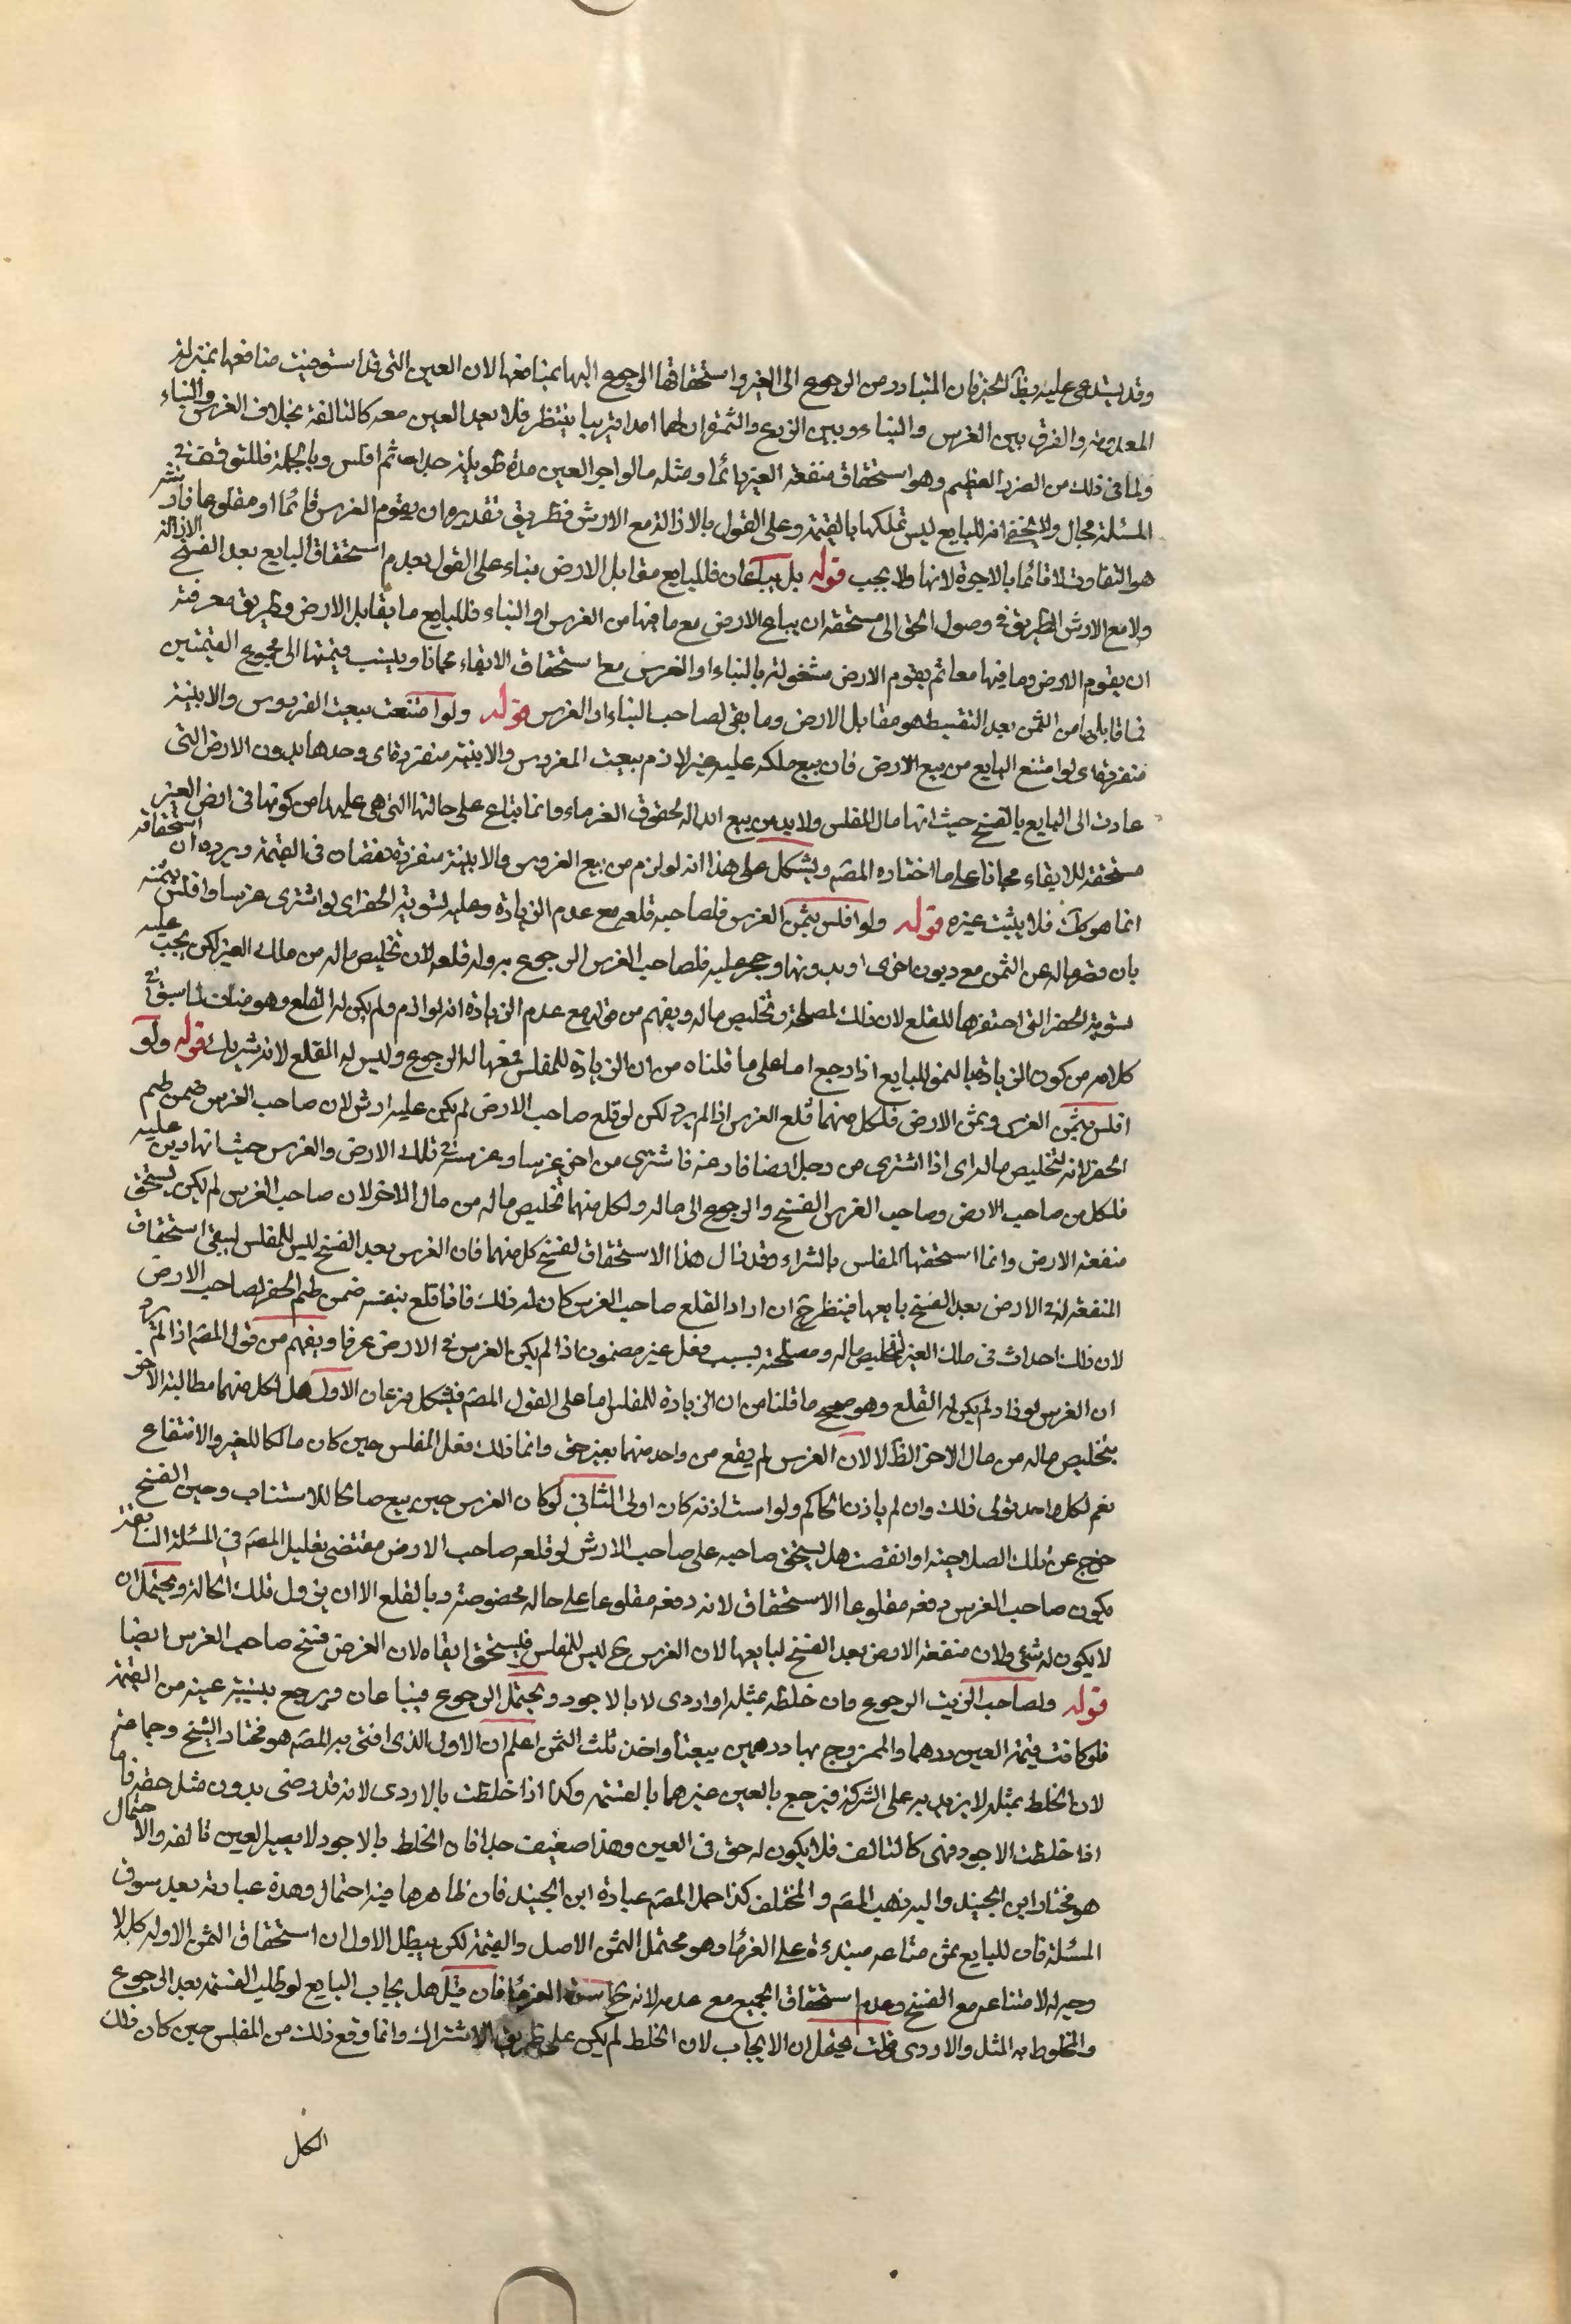 وقد يستدعى عليه بظاهر الخبر فان المتبادر من الرجوع الى العين واستحقاقها الرجوع اليها بمنافعها لان العين التى قد استوفيت منافعها بمنزلة
المعدومة والفرق بين الغرس والبناء وبين الزرع والثمرة ان لهما امدا قريبا ينتظر فلا يعد العين معه كالتالفة بخلاف الغرس والبناء
ولما فى ذلك من الضرر العظيم وهو استحقاق منفعة العين دائما ومثله ما لو اجر العين مدة طويلة جدا ثم افلس وبالجملة فللتوقف فى
المسئلة مجال ولا يخفى انه للبايع ليس تملكها بالقيمة وعلى القول بالازالة مع الارش فطريق تقديره ان يقوم الغرس قائما او مقلوعا
هو التفاوت لا قائما بالاجرة لانها لا يجب قوله بل يباعان فللبايع مقابل الارض بناء على القول بعدم استحقاق البايع بعد الفسخ الازالة
ولا مع الارش الطريق فى وصول الحق الى مستحقه ان يباع الارض مع ما فيها من الغرس او البناء فللبايع ما يقابل الارض وطريق معرفته
ان يقوم الارض وما فيها معا ثم يقوم الارض مشغولة بالبناء او الغرس مع استحقاق الابقاء مجانا وينسب قيمتها الى مجموع القيمتين
فما قابلها من الثمن بعد التقسيط هو مقابل الارض وما بقى لصاحب البناء او الغرس قوله ولو امتنعت بيعت الغروس والابنية
منفردة اى لو امتنع البايع من بيع الارض فان بيع ملكه عليه غير لازم بيعت الغروس والابنية منفردة اى وحدها بدون الارض التى
عادت الى البايع بالفسخ حيث انها مال المفلس ولا بد من بيع امواله لحقوق الغرماء وانما تباع على حالتها التى هى عليها من كونها فى ارض الغير
مستحقة للابقاء مجانا على ما اختاره المصم ويشكل على هذا انه لو لزم من بيع الغروس والابنية منفردة نقصان فى القيمة ويرده ان استحقاقه
انما هو كك فلا يثبت غيره قوله ولو افلس بثمن الغرس فلصاحبه قلعه مع عدم الزيادة وعليه تسوية الحفر اى لو اشترى غرسا وافلس بثمنه
بان قصر ماله عن الثمن مع ديون اخرى او بدونها وحجر عليه فلصاحب الغرس الرجوع به وله قلعه لان تخليص ماله من ملك الغير لكن يجب عليه
تسوية الحفر التى احتفرها للقلع لان ذلك لمصلحة وتخليص ماله ويفهم من قوله مع عدم الزيادة انه لو لزم ولم يكن له القلع وهو مناف لما سبق فى
كلامه من كون الزيادة بالنمو للبايع اذا رجع اما على ما قلناه من ان الزيادة للمفلس فمعها له الرجوع وليس له القلع لانه شريك قوله ولو
افلس بثمن الغرس وبثمن الارض فلكل منهما قلع الغرس اذا لم يزد لكن لو قلع صاحب الارض لم يكن عليه ارش لان صاحب الغرس ضمن طم
الحفر لانه لتخليص ماله اى اذا اشترى من رجل ارضا فارغة فاشترى من اخر غرسا وغرسه فى تلك الارض والغرس حيث انها دين عليه
فلكل من صاحب الارض وصاحب الغرس الفسخ والرجوع الى ماله ولكل منهما تخليص ماله من مال الاخر لان صاحب الغرس لم يكن يستحق
منفعة الارض وانما استحقها المفلس بالشراء وقد زال هذا الاستحقاق لفسخ كل منهما فان الغرس بعد الفسخ ليس للمفلس ليبقى استحقاق
المنفعة له فى الارض بعد الفسخ بايعها فينظر ح ان اراد القلع صاحب الغرس كان له ذلك فاذا قلع بنفسه ضمن طم الحفر لصاحب الارض
لان ذلك احداث فى ملك الغير لتخليص ماله ومصلحته بسبب فعل غير مضمون اذا لم يكن الغرس فى الارض عرفا ويفهم من قول المصم اذا لم يزد
ان الغرس لو زاد لم يكن له القلع وهو صحيح ما قلنا من ان الزيادة للمفلس اما على القول المصم فيشكل فرعان الاول هل لكل منهما مطالبة الاخر
بتخليص ماله من مال الاخر الظ لا لان الغرس لم يقع من واحد منهما بغير حق وانما ذلك فعل المفلس حين كان مالكا للغير والانتفاع
نعم لكل واحد تولى ذلك وان لم ياذن الحاكم ولو استاذنه كان اولى الثانى لو كان الغرس حين بيع صالحا للاستناب وحين الفسخ
خرج عن تلك الصلاحية او انقصت هل يستحق صاحبه على صاحب الارش لو قلعه صاحب الارض مقتضى تعليل المصم فى المسئلة السابقة
يكون صاحب الغرس دفعه مقلوعا الاستحقاق لانه دفعه مقلوعا على حاله مخصوصة وبالقلع الا ان يزول تلك الحالة ويحتمل ان
لا يكون له شئ ولان منفعة الارض بعد الفسخ لبايعها لان الغرس ح ليس للمفلس فيستحق ابقاه لان الغرض فسخ صاحب الغرس ايضا
قوله ولصاحب الزيت الرجوع وان خلطه بمثله او اردى لا بالاجود ويحتمل الرجوع فيباعان ويرجع بنسبة عينه من القيمة
فلو كانت قيمة العين درهما والممزوج بها درهمين بيعتا واخذ ثلث الثمن اعلم ان الاول الذى افتى به المصم هو مختار الشيخ وجماعة
لان الخلط بمثله لا يزيد به على الشركة فيرجع بالعين غيرهما بالقسمة وكذا اذا خلطت بالاردى لانه قد رضى بدون مثل حقه فاما
اذا خلطت الاجود فهى كالتالف فلا يكون له حق فى العين وهذا ضعيف جدا فان الخلط بالاجود لا يصير العين تالفة والاحتمال
هو مختار ابن الجنيد واليه ذهب المصم والمختلف كذا حمل المصم عبارة ابن الجنيد فان ظاهرها فيه احتمال وهذه عبارته بعد سوق
المسئلة فان للبايع ثمن متاعه مبتدءة على الغرماء وهو محتمل الثمن الاصل والقيمة لكن يبطل الاول ان استحقاق الثمن الاول كله لا
وجه له لامتناعه مع الفسخ وعدم استحقاق الجميع مع عدمه لانه الغرماء فان قيل هل يجاب البايع لو طلب القسمة بعد الرجوع
والمخلوط به المثل والاردى قلت يحتمل ان الايجاب لان الخلط لم يكن على طريق الاشتراك وانما وقع ذلك من المفلس حين كان ذلك
الكل